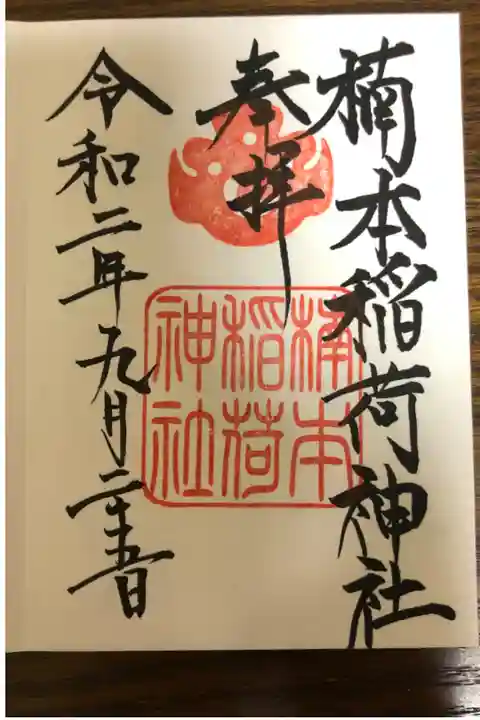 楠本稲荷神社
奉拝
楠本
稲荷
神社
令和二年九月二十五日